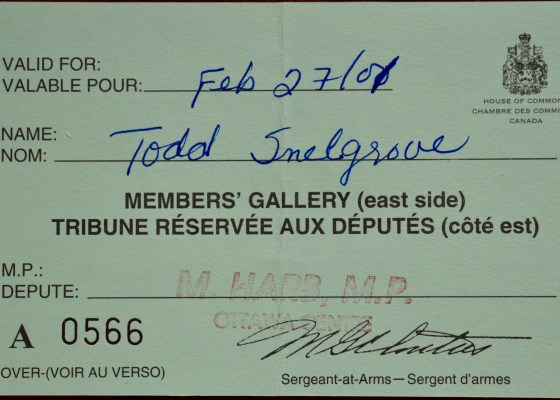 VALID FOR:
VALABLE POUR: Feb 27/01
HOUSE OF COMMON
CHAMBRE DES COMMU
CANADA
NAME:
NOM: Todd Snelgrove
MEMBERS' GALLERY (east side)
TRIBUNE RÉSERVÉE AUX DÉPUTÉS (côté est)
M.P.:
DEPUTE: M. HARB, M.P.
OTTAWA CENTRE
A 0566
OVER-(VOIR AU VERSO)
Sergeant-at-Arms—Sergent d'armes